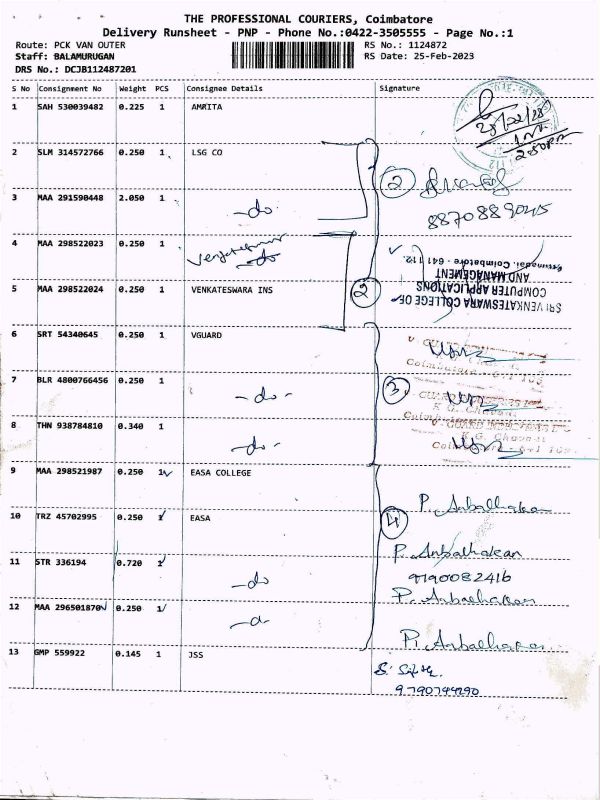 THE PROFESSIONAL COURIERS, Coimbatore
Delivery Runsheet - PNP - Phone No.:0422-3505555 - Page No.:1
Route: PCK VAN OUTER RS No.: 1124872
Staff: BALAMURUGAN RS Date: 25-Feb-2023
DRS No.: DCJB112487201
S No Consignment No Weight PCS Consignee Details Signature
1 SAH 530039482 0.225 1 AMRITA
2:50pm
2 SLM 314572766 0.250 1 LSG CO
2
3 MAA 291590448 2.050 1 -do-
8870889045
4 MAA 298522023 0.250 1 -do
Coimbatore - 641 112.
AND MANAGEMENT
COMPUTER APPLICATIONS
SRI VENKATESWARA COLLEGE OF
5 MAA 298522024 0.250 1 VENKATESWARA INS
2
6 SRT 54340645 0.250 1 VGUARD
7 BLR 4800766456 0.250 1 -do-
3
8 THN 938784810 0.340 1 -do-
9 MAA 298521987 0.250 1 EASA COLLEGE
P. Anbalhakan
10 TRZ 45702995 0.250 1 EASA
4
P. Anbalhakan
11 STR 336194 0.720 1 -do
9190082416
P. Anbalhakan
12 MAA 296501870 0.250 1 -d
P. Anbalhakan
13 GMP 559922 0.145 1 JSS
9790794290